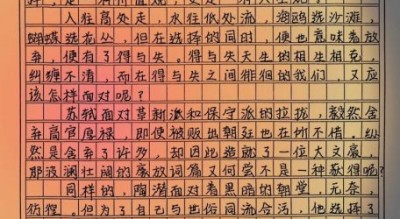 人往高处走，水往低处流，海鸥选沙滩，
蝴蝶选花丛。但在选择的同时，便也意味着放
弃，便有了得与失。得与失天生的相生相克，
纠缠不清，而在得与失之间徘徊的我们，又应
该怎样面对呢？
苏轼面对革新派和保守派的拉拢，毅然舍
弃高官厚禄，即使被贬出朝廷也在所不惜。纵
然是舍弃了许多，却因此造就了一位大文豪，
那波澜壮阔的豪放词篇又何尝不是一种获得呢？
同样的，陶潜面对着黑暗的朝堂，无奈，
彷徨。但为了自己不与世俗同流合污，他选择了